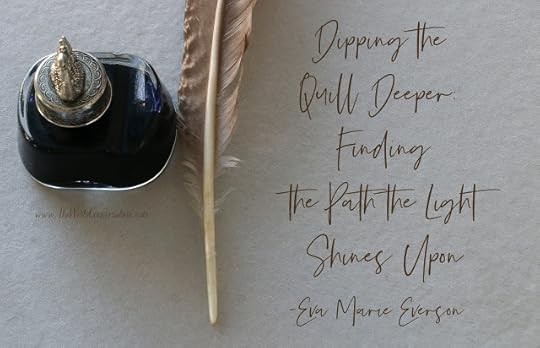 Dipping the
Quill Deeper:
Finding
the Path the Light
Shines Upon
-Eva Marie Everson
www.TheWriteConversation.com